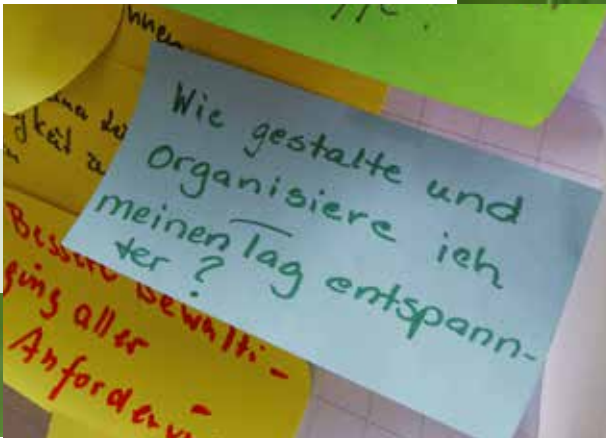 nnen
gkeit
Wie gestalte und
Organisiere ich
meinen Tag entspann-
ter ?
Bessere Bewälti-
gung aller
Anforder